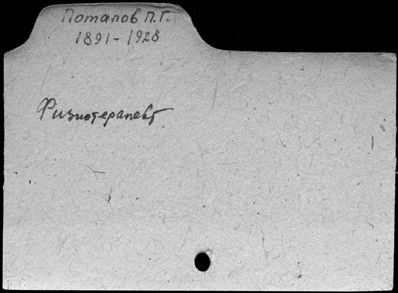 Потапов П.Г.
1891-1928
Физиотерапевт